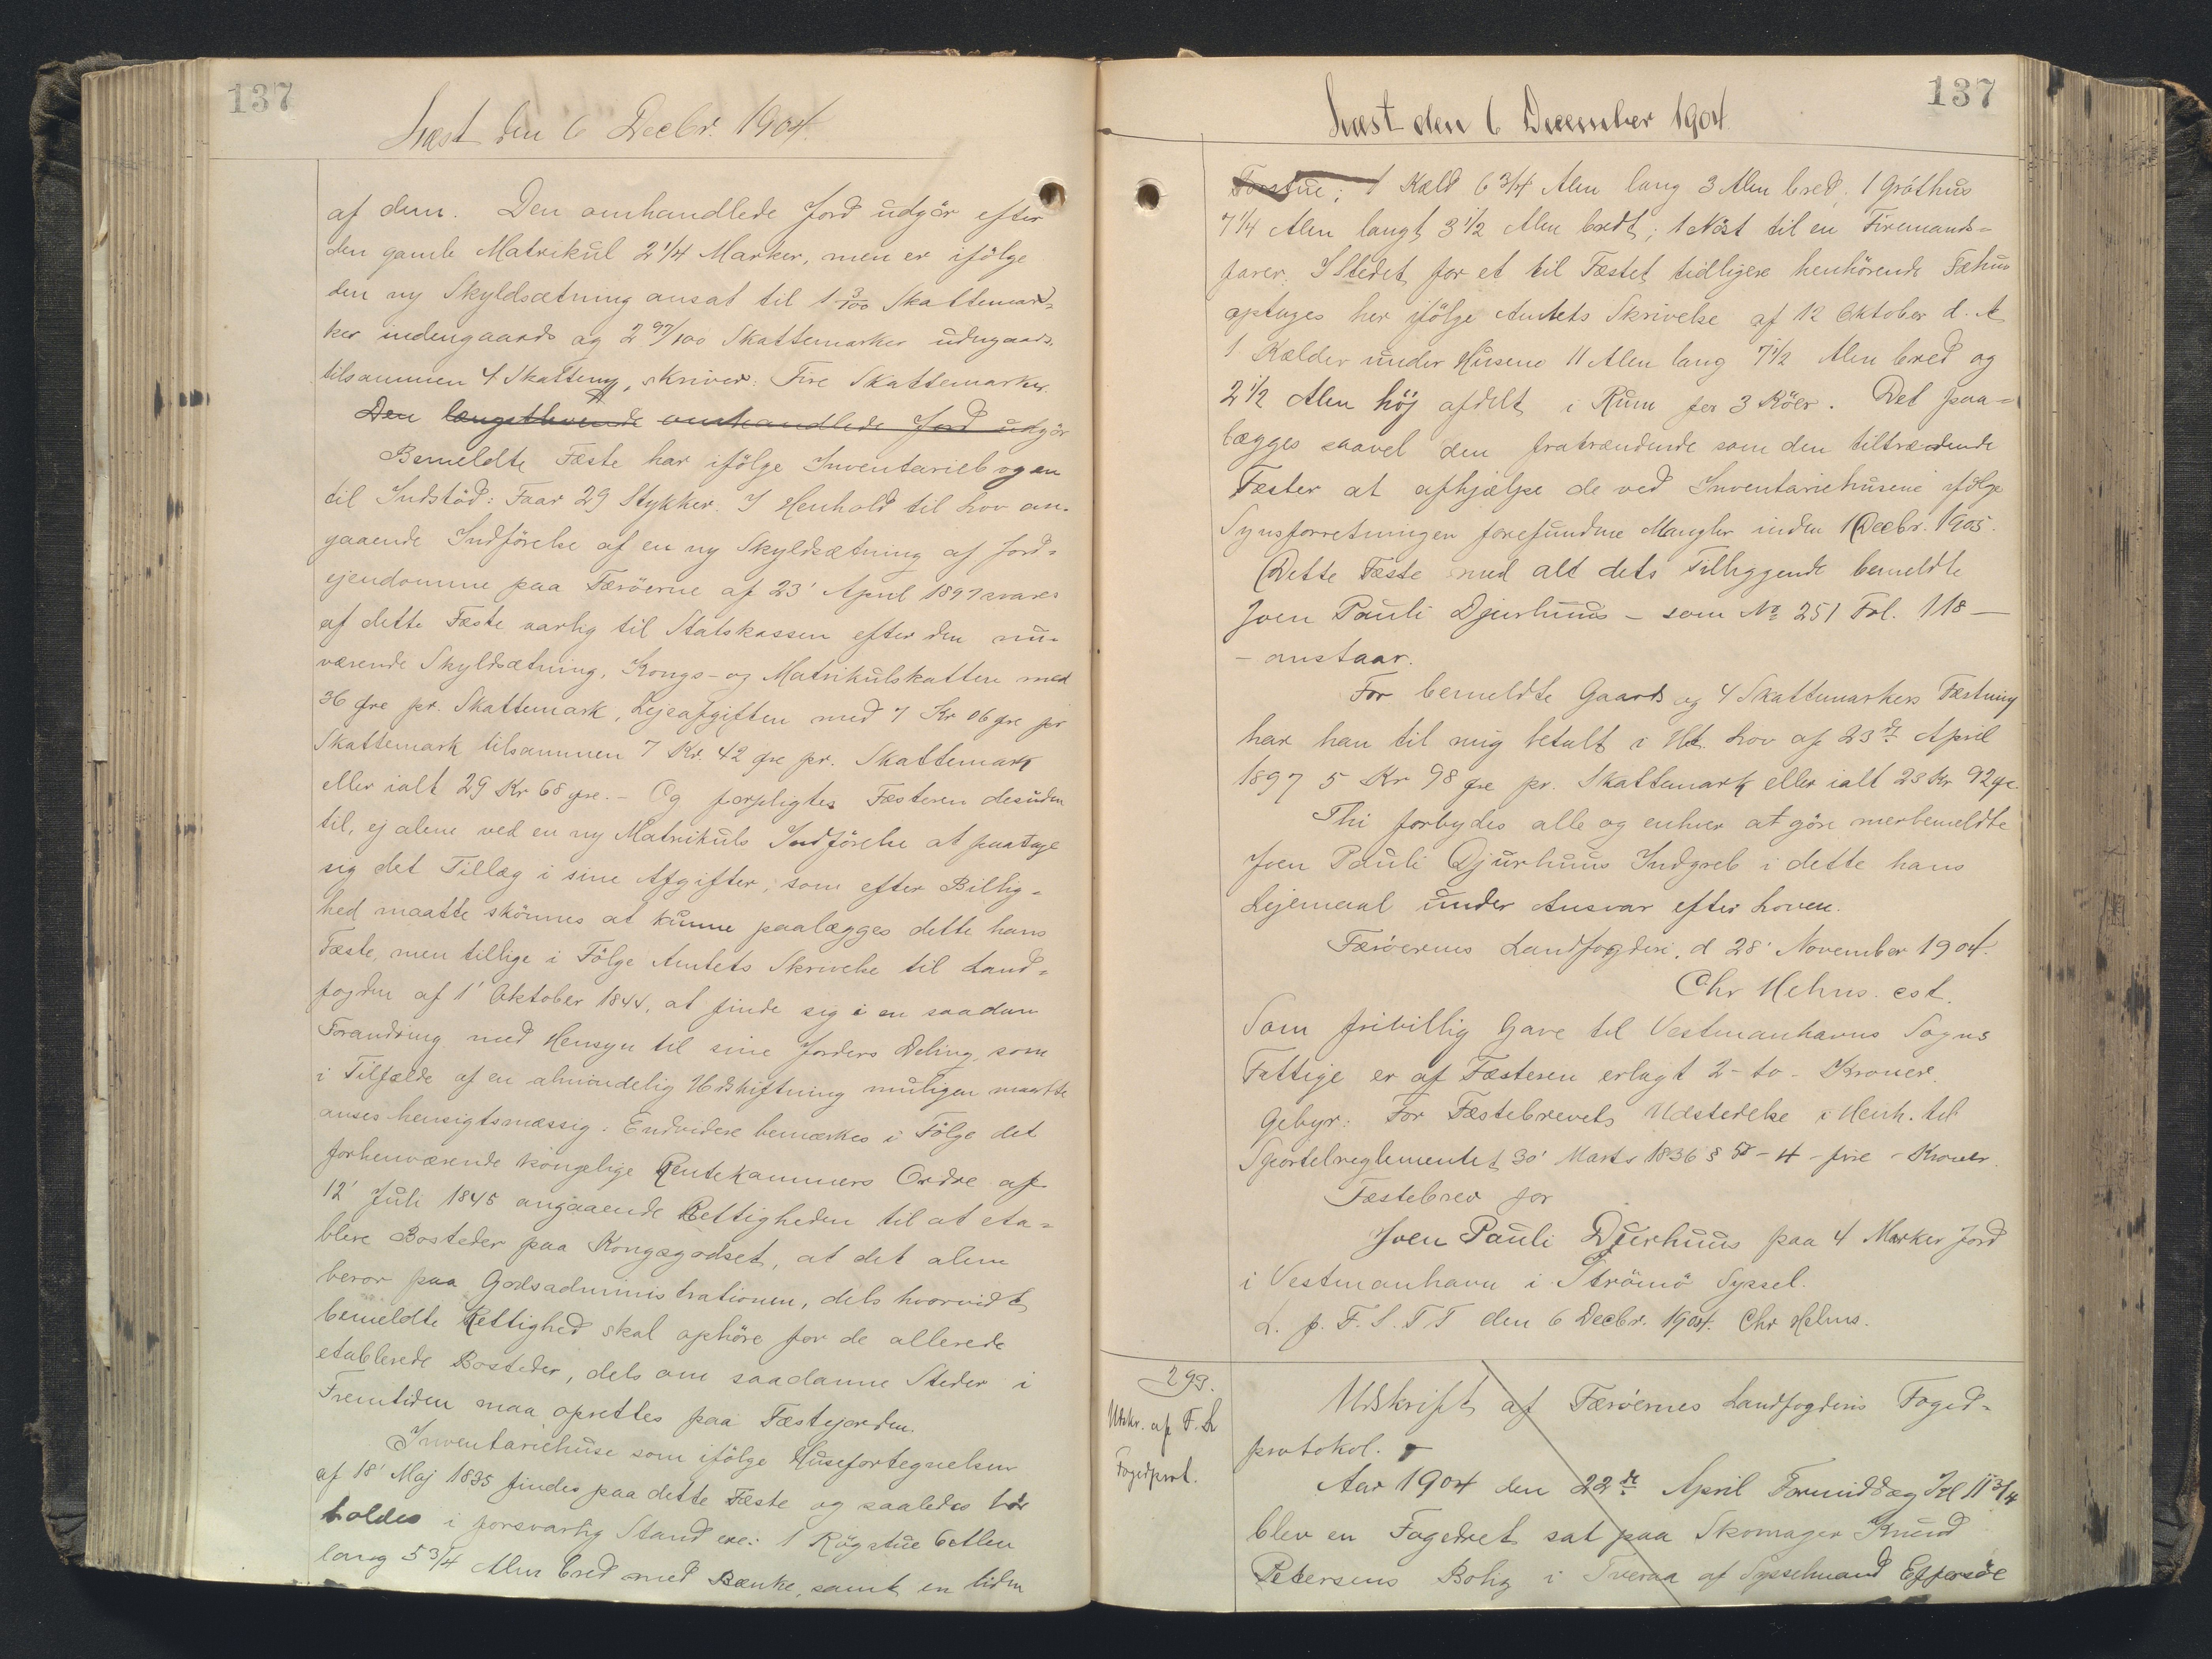 137
Læst den 6 Decbr. 1904.
af dem. Den omhandlede Jord udgör efter
den gamle Matrikul 2 1/4 Marker, men er ifölge
den ny Skyldsætning ansat til 1 3/100 Skattemar-
ker indengaards og 2 97/100 Skattemarker udengaards
tilsammen 4 Skattemk, skriver: Fire Skattemarker.
Den længstlevende omhandlede Jord udgör
Bemeldte Fæste har ifölge Inventariebogen
til Indstöd: Faar 29 Stykker. I Henhold til Lov an-
gaaende Indförelse af en ny Skyldsætning af Jord-
ejendomme paa Færöerne af 23' April 1897 svares
af dette Fæste aarlig til Statskassen efter den nu-
værende Skyldsætning, Kongs- og Matrikulskatten med
36 Øre pr. Skattemark, Lejeafgiften med 7 Kr 06 Øre pr
Skattemark tilsammen 7 Kr. 42 Øre pr. Skattemark
eller ialt 29 Kr 68 Øre. - Og forpligtes Fæsteren desuden
til, ej alene ved en ny Matrikuls Indförelse at paatage
sig det Tillæg i sine Afgifter, som efter Billig-
hed maatte skönnes at kunne paalægges dette hans
Fæste, men tillige i Fölge Amtets Skrivelse til Land-
fogden af 1' Oktober 1844, at finde sig i en saadan
Forandring med Hensyn til sine Jorders Deling, som
i Tilfælde af en almindelig Udskiftning muligen maatte
anses hensigtsmæssig. Endvidere bemærkes i Fölge det
forhenværende kongelige Rentekammers Ordre af
12' Juli 1845 angaaende Rettigheden til at eta-
blere Bosteder paa Kongsgodset, at det alene
beror paa Godsadministrationen, dels hvorvidt
bemeldte Rettighed skal ophöre for de allerede
etablerede Bosteder, dels om saadanne Steder i
Fremtiden maa oprettes paa Fæstejorden.
Inventariehuse som ifölge Husefortegnelsen
af 18' Maj 1835 findes paa dette Fæste og saaledes bör
holdes i forsvarlig Stand ere: 1 Rögstue 6 Alen
lang 5 3/4 Alen bred med Bænke, samt en liden
137
Læst den 6 December 1904.
Forstue; 1 Kæld 6 3/4 Alen lang 3 Alen bred, 1 Gróthus
7 1/4 Alen langt 3 1/2 Alen bredt; 1 Nöst til en Firemands-
farer. I Stedet for et til Fæstet tidligere henhörende Fæhus
optages her ifölge Amtets Skrivelse af 12 Oktober d. A
1 Kælder under Husene 11 Alen lang 7 1/2 Alen bred og
2 1/2 Alen höj afdelt i Rum for 3 Köer. Det paa-
lægges saavel den fratrædende som den tiltrædende
Fæster at afhjælpe de ved Inventariehusene ifölge
Synsforretningen forefundne Mangler inden 1 Decbr. 1905.
Dette Fæste med alt dets Tilliggende bemeldte
Joen Pauli Djurhuus - som No 251 Fol. 118 -
- anstaar.
For bemeldte Gaards og 4 Skattemarkers Fæstning
har han til mig betalt i Ht. Lov af 23de April
1897 5 Kr 98 Øre pr. Skattemark eller ialt 23 Kr 92 Øre.
Thi forbydes alle og enhver at göre merbemeldte
Joen Pauli Djurhuus Indgreb i dette hans
Lejemaal under Ansvar efter Loven.
Færöernes Landfogderi, d 28' November 1904.
Chr Helms. cst.
Som frivillig Gave til Vestmanhavns Sogns
Fattige er af Fæsteren erlagt 2 - to - Kroner.
Gebyr: For Fæstebrevets Udstedelse i Henh. til
Sportelreglementet 30' Marts 1836 § - 4 - fire - Kroner.
Fæstebrev for
Joen Pauli Djurhuus paa 4 Marker Jord
i Vestmanhavn i Strömö Syssel.
L. p. F. S. T T den 6 Decbr. 1904. Chr Helms.
299.
Udskr. af F. L
Fogedprot.
Udskrift af Færöernes Landfogderis Foged-
protokol.
Aar 1904 den 22de April Formiddag Kl 11 3/4
blev en Fogedret sat paa Skomager Knud
Petersens Bolig i Tveraa af Sysselmand Effersöe